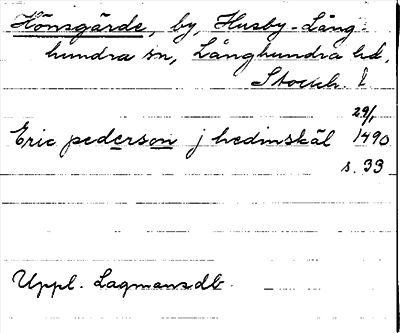 Hönsgärde, by, Husby-Lång-
hundra sn, Långhundra hd,
Stockh. l
29/1
Eric pederson j hedinskäl 1490
s. 33
Uppl. Lagmansdb.